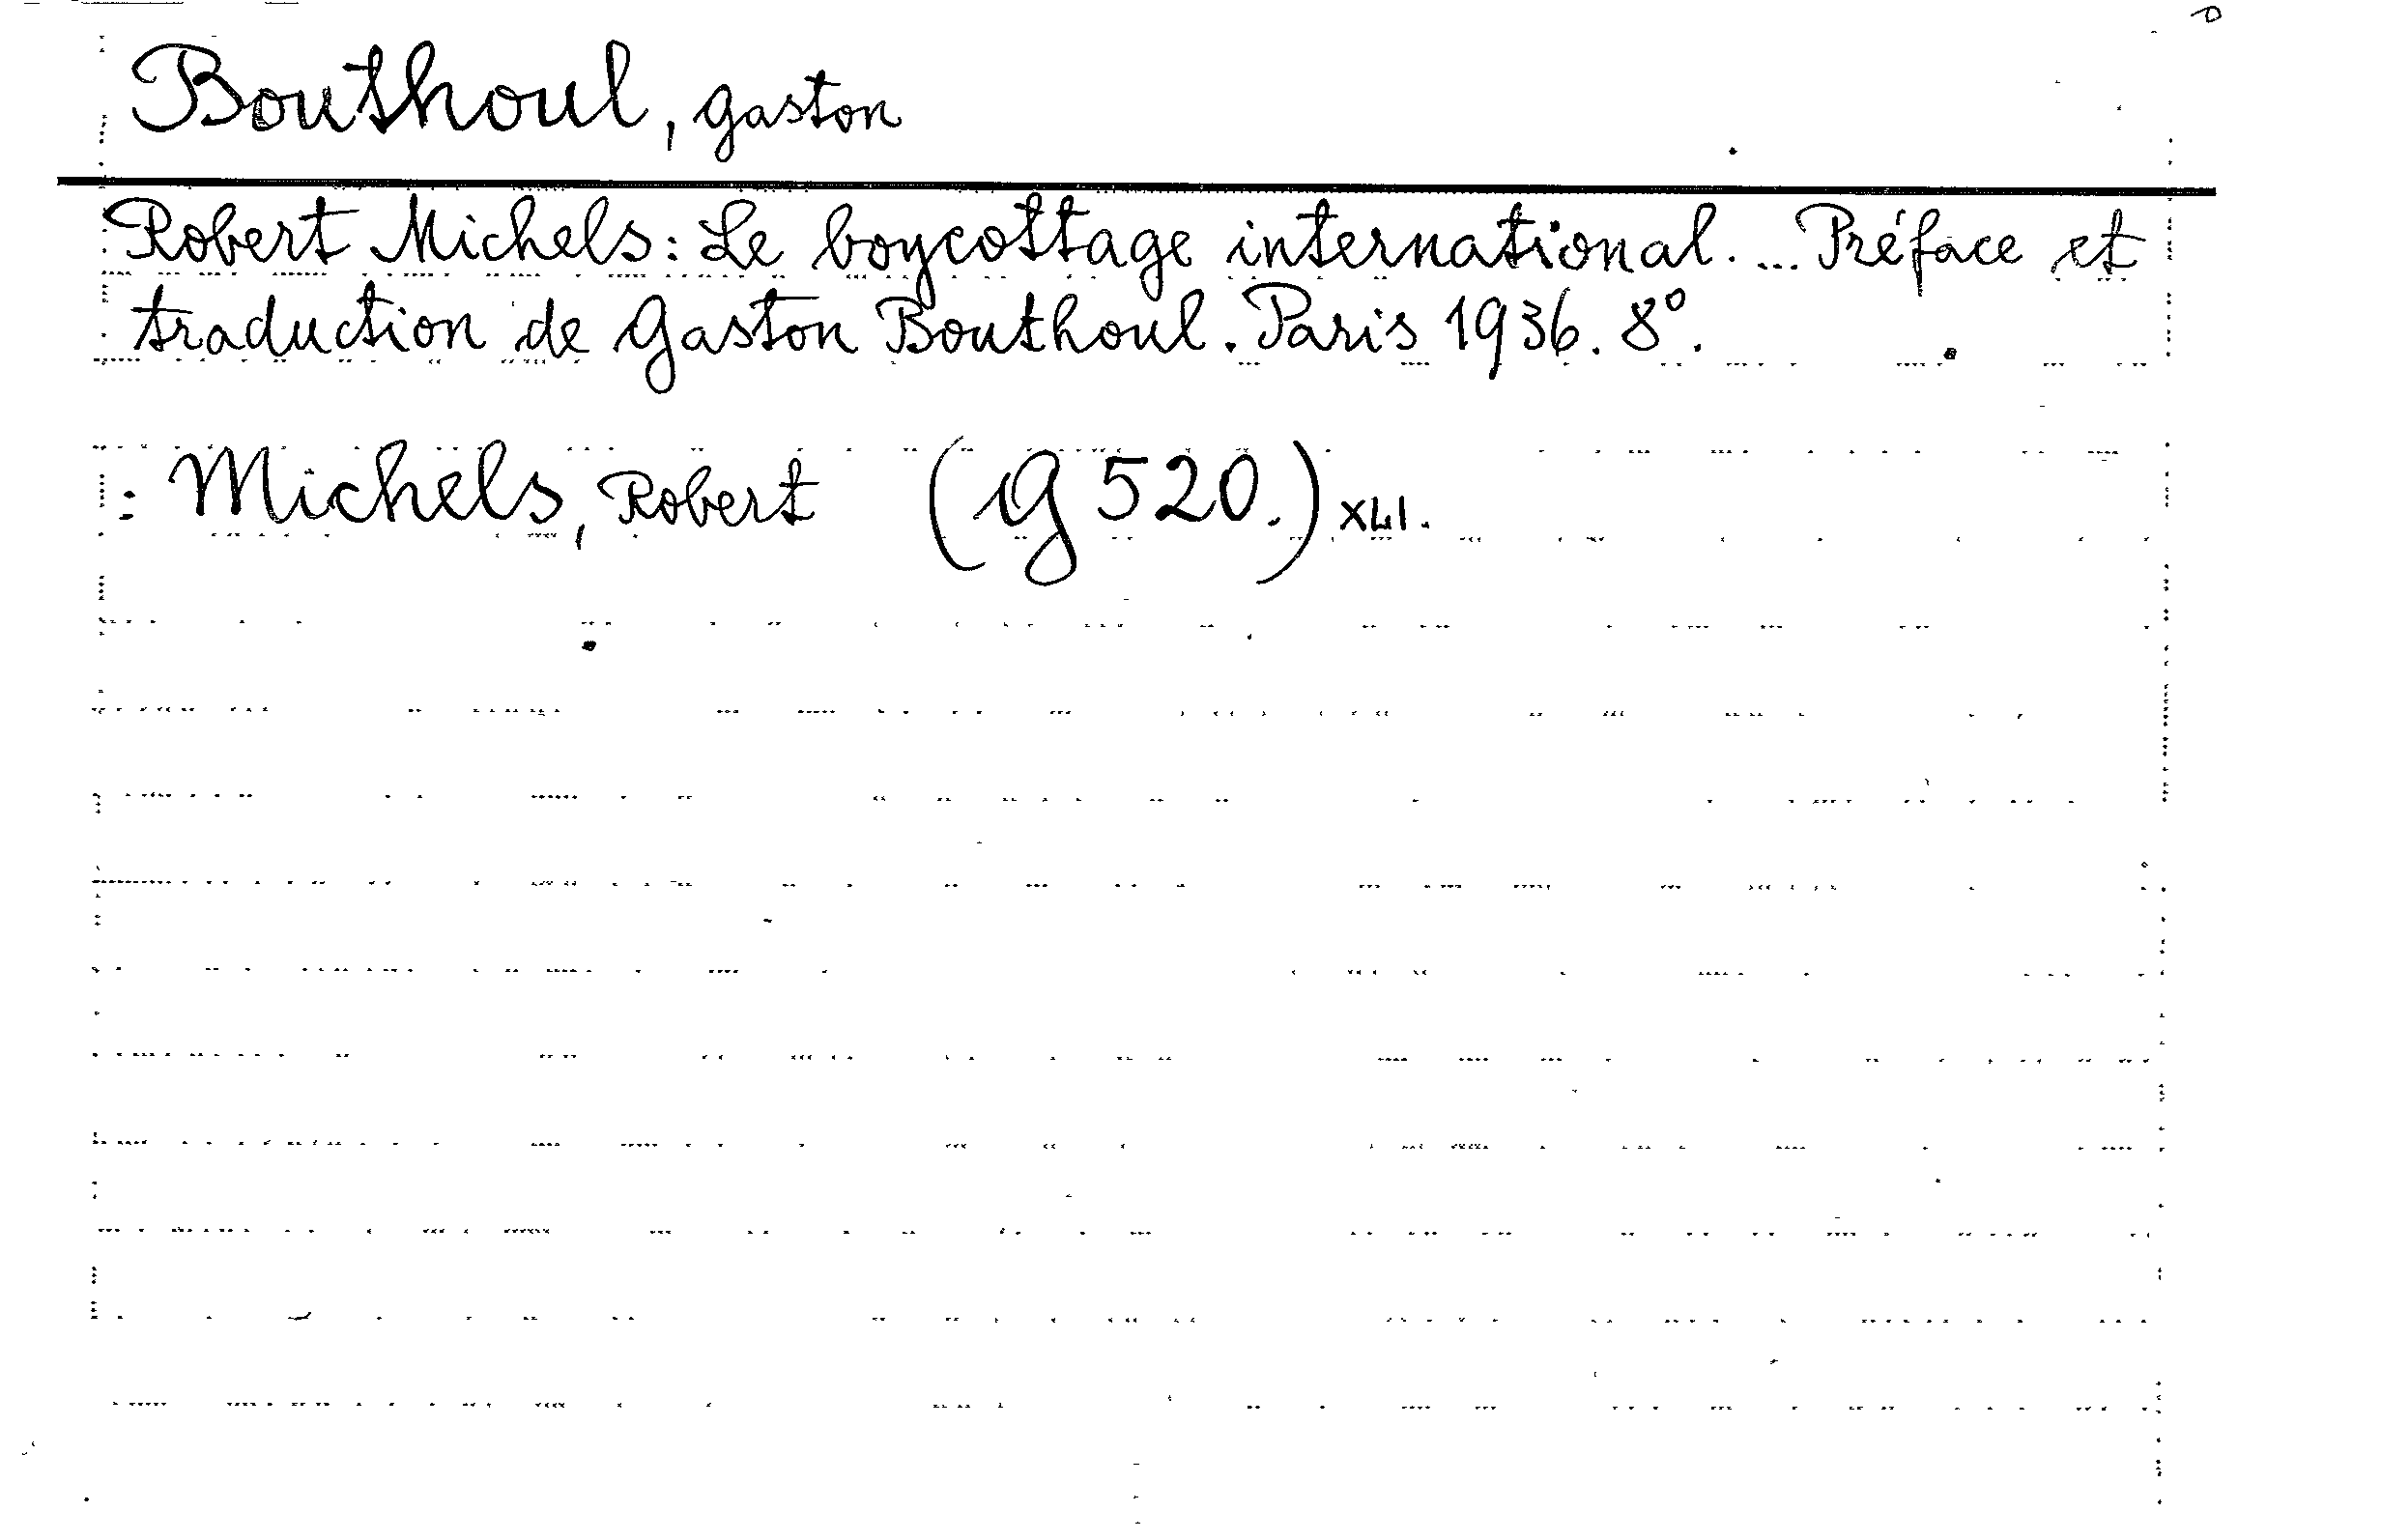 Bouthoul, Gaston
Robert Michels: Le boycottage international. ... Préface et
traduction de Gaston Bouthoul. Paris 1936. 8°.
: Michels, Robert (G 520.) XLI.